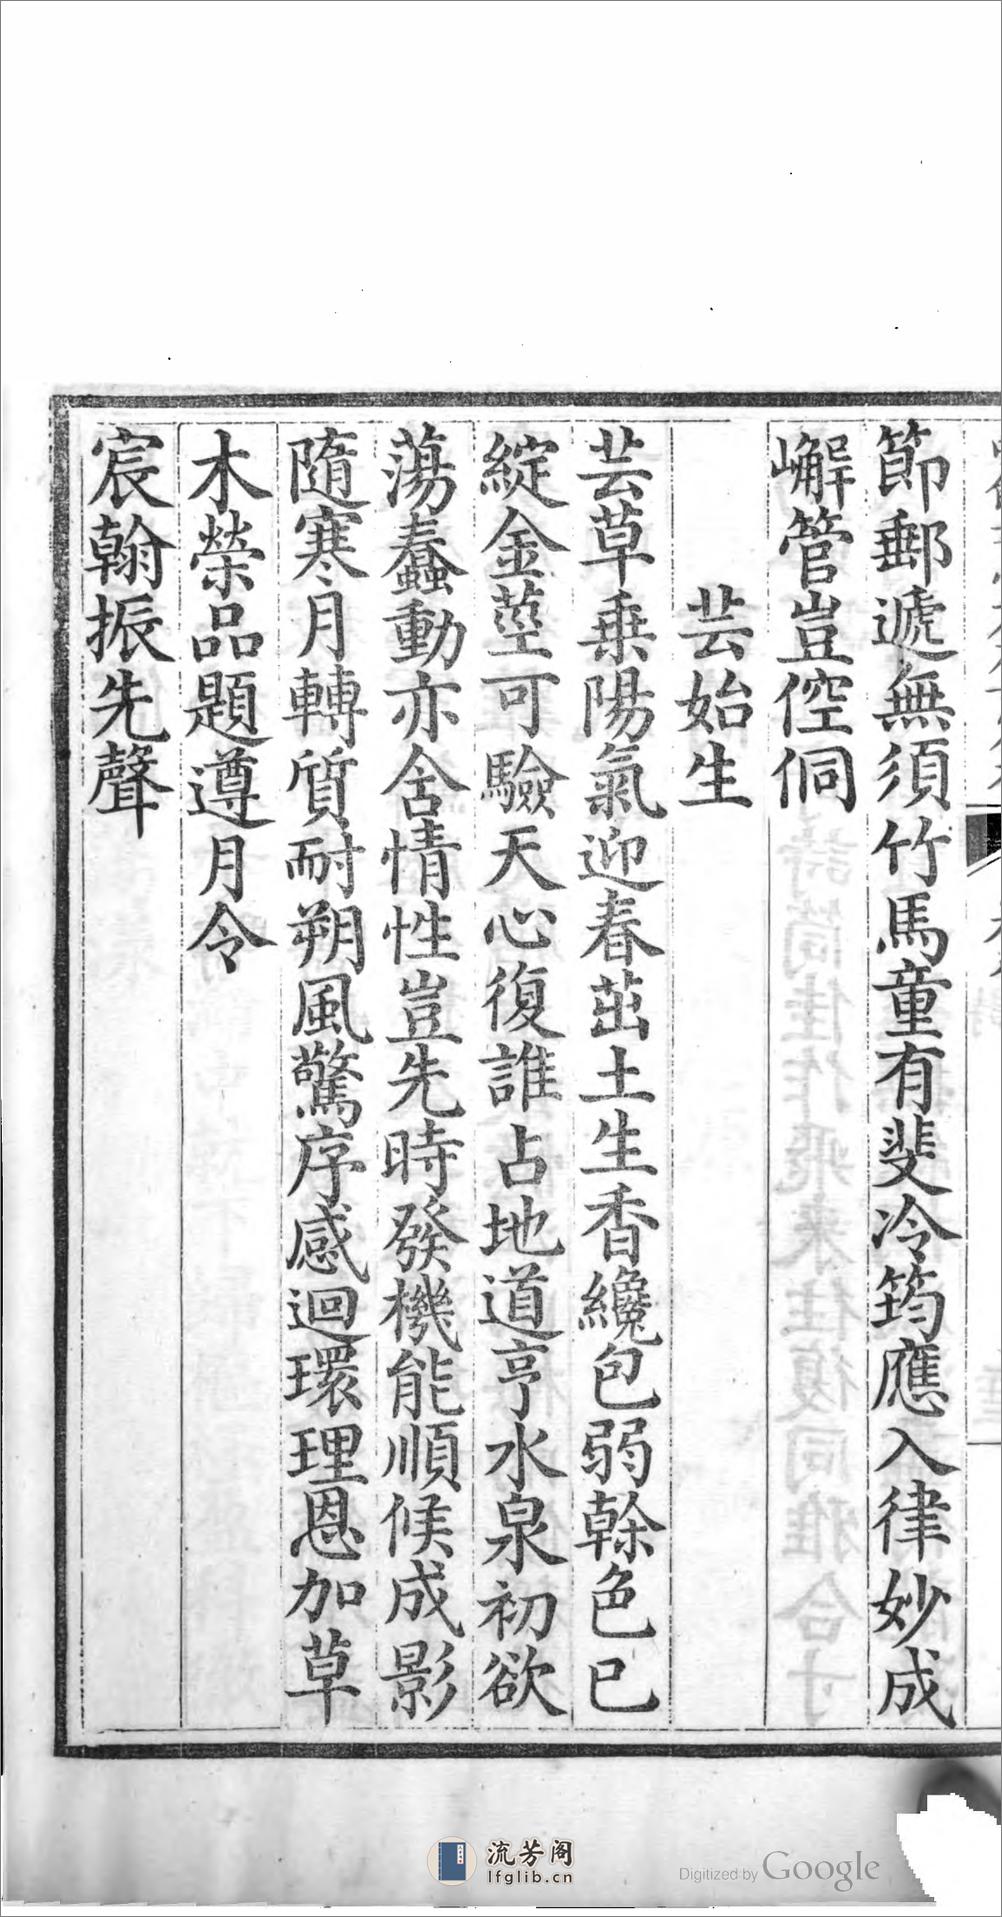 節郵遞無須竹馬童有斐冷筠應入律妙成
嶰管豈倥侗
芸始生
芸草乗陽氣迎春茁土生香纔包弱榦色已
綻金莖可驗天心復誰占地道亨水泉初欲
蕩蠢動亦含情性豈先時發機能順候成影
隨寒月轉質耐朔風驚序感迴環理恩加草
木榮品題遵月令
宸翰振先聲
流芳阁
lfglib.cn
Digitized by Google